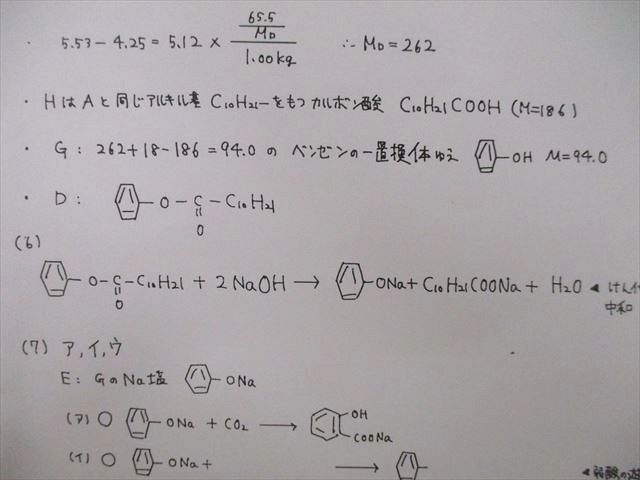 ・ 5.53 - 4.25 = 5.12 × (65.5/M_D)/1.00kg ∴ M_D = 262
・HはAと同じアルキル基 C10H21-をもつカルボン酸 C10H21COOH (M=186)
・G: 262+18-186=94.0 の ベンゼンの一置換体ゆえ -OH M=94.0
・D: -O-C-C10H21
O
(6)
-O-C-C10H21 + 2NaOH → -ONa + C10H21COONa + H2O ◀けん化
O 中和
(7) ア,イ,ウ
E: GのNa塩 -ONa
(ア) ○ -ONa + CO2 → OH
COONa
(イ) ○ -ONa + →
◀弱酸の遊